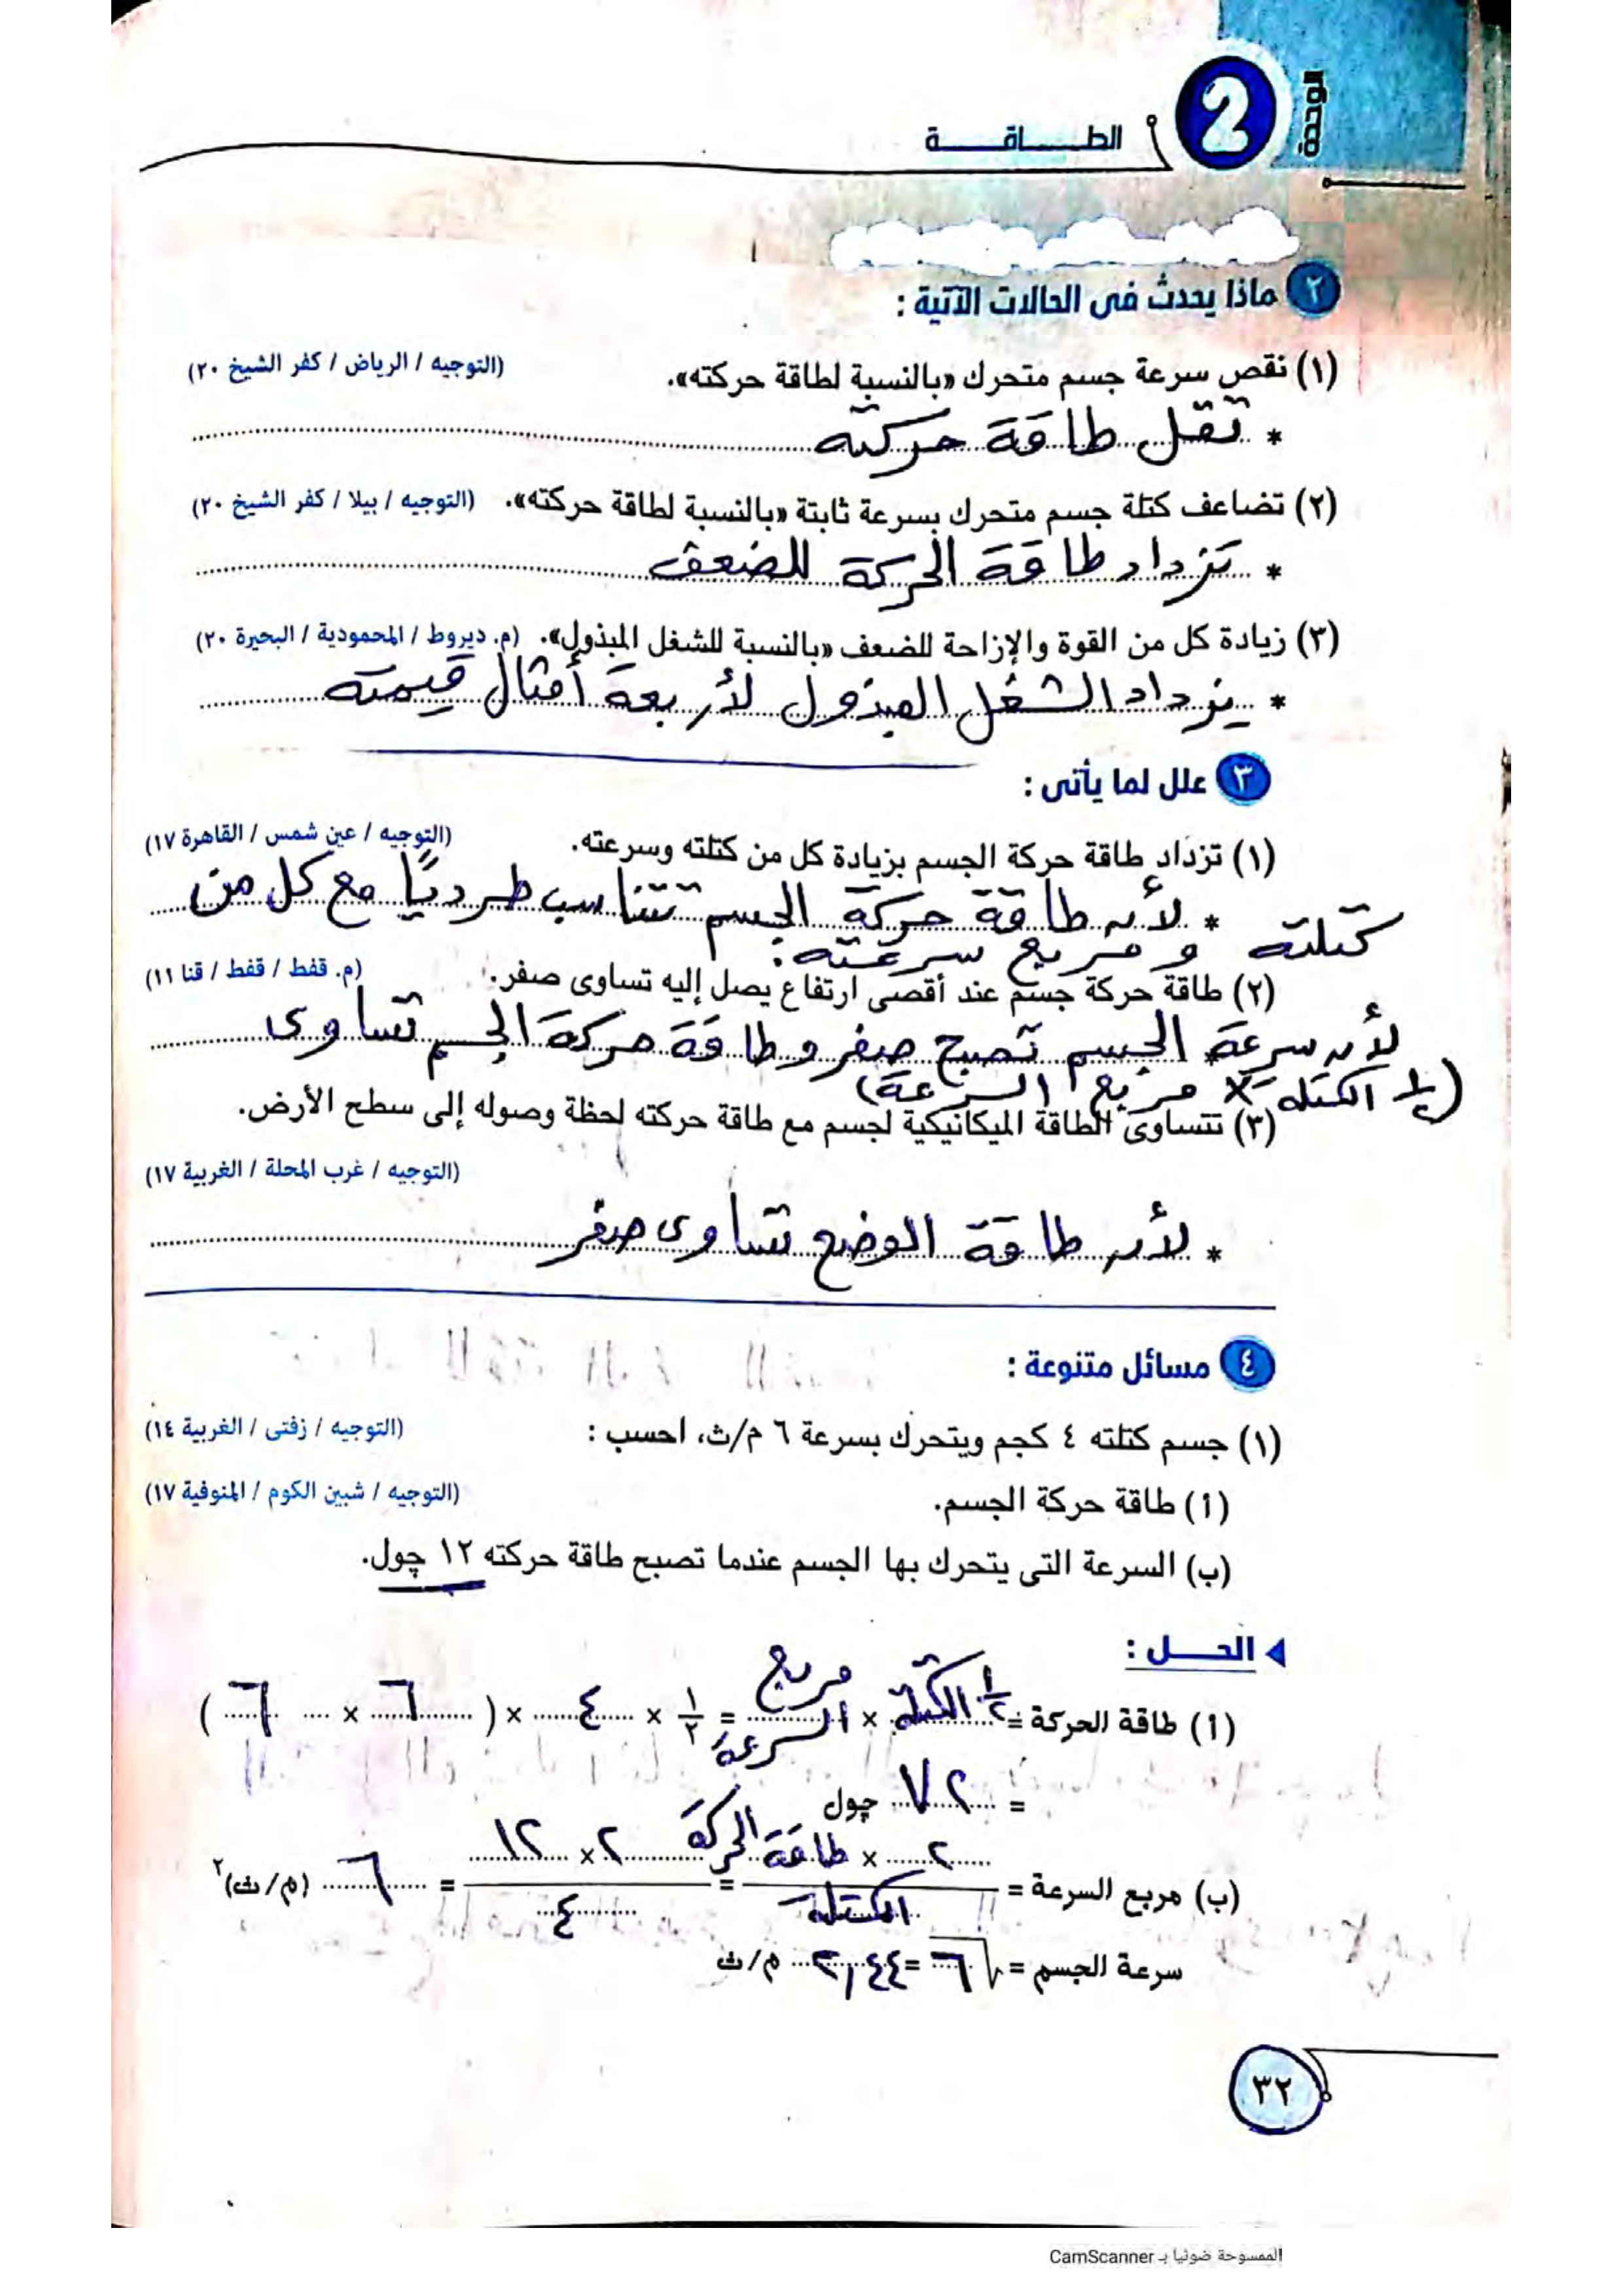 الوحدة
2
الطـــــاقـــــة
٢ ماذا يحدث فى الحالات الآتية :
(١) نقص سرعة جسم متحرك «بالنسبة لطاقة حركته». (التوجيه / الرياض / كفر الشيخ ٢٠)
* تقل طاقة حركته
(٢) تضاعف كتلة جسم متحرك بسرعة ثابتة «بالنسبة لطاقة حركته». (التوجيه / بيلا / كفر الشيخ ٢٠)
* تزداد طاقة الحركة للضعف
(٣) زيادة كل من القوة والإزاحة للضعف «بالنسبة للشغل المبذول». (م. ديروط / المحمودية / البحيرة ٢٠)
* يزداد الشغل المبذول لأربعة أمثال قيمته
٣ علل لما يأتى :
(١) تزداد طاقة حركة الجسم بزيادة كل من كتلته وسرعته. (التوجيه / عين شمس / القاهرة ١٧)
* لأن طاقة حركة الجسم تتناسب طرديًا مع كل من
كتلته ومربع سرعته.
(٢) طاقة حركة جسم عند أقصى ارتفاع يصل إليه تساوى صفر. (م. قفط / قفط / قنا ١١)
* لأن سرعة الجسم تصبح صفر وطاقة حركة الجسم تساوى
(½ الكتلة × مربع السرعة)
(٣) تتساوى الطاقة الميكانيكية لجسم مع طاقة حركته لحظة وصوله إلى سطح الأرض.
(التوجيه / غرب المحلة / الغربية ١٧)
* لأن طاقة الوضع تساوى صفر
٤ مسائل متنوعة :
(١) جسم كتلته ٤ كجم ويتحرك بسرعة ٦ م/ث، احسب : (التوجيه / زفتى / الغربية ١٤)
(أ) طاقة حركة الجسم. (التوجيه / شبين الكوم / المنوفية ١٧)
(ب) السرعة التى يتحرك بها الجسم عندما تصبح طاقة حركته ١٢ چول.
الحـــل :
(أ) طاقة الحركة = ½ الكتلة × مربع السرعة = ١/٢ × ٤ × (٦ × ٦)
= ٧٢ چول
(ب) مربع السرعة = ٢ × طاقة الحركة / الكتلة = ٢ × ١٢ / ٤ = ٦ (م/ث)٢
سرعة الجسم = √٦ = ٢,٤٤ م/ث
٣٢
الممسوحة ضوئيا بـ CamScanner